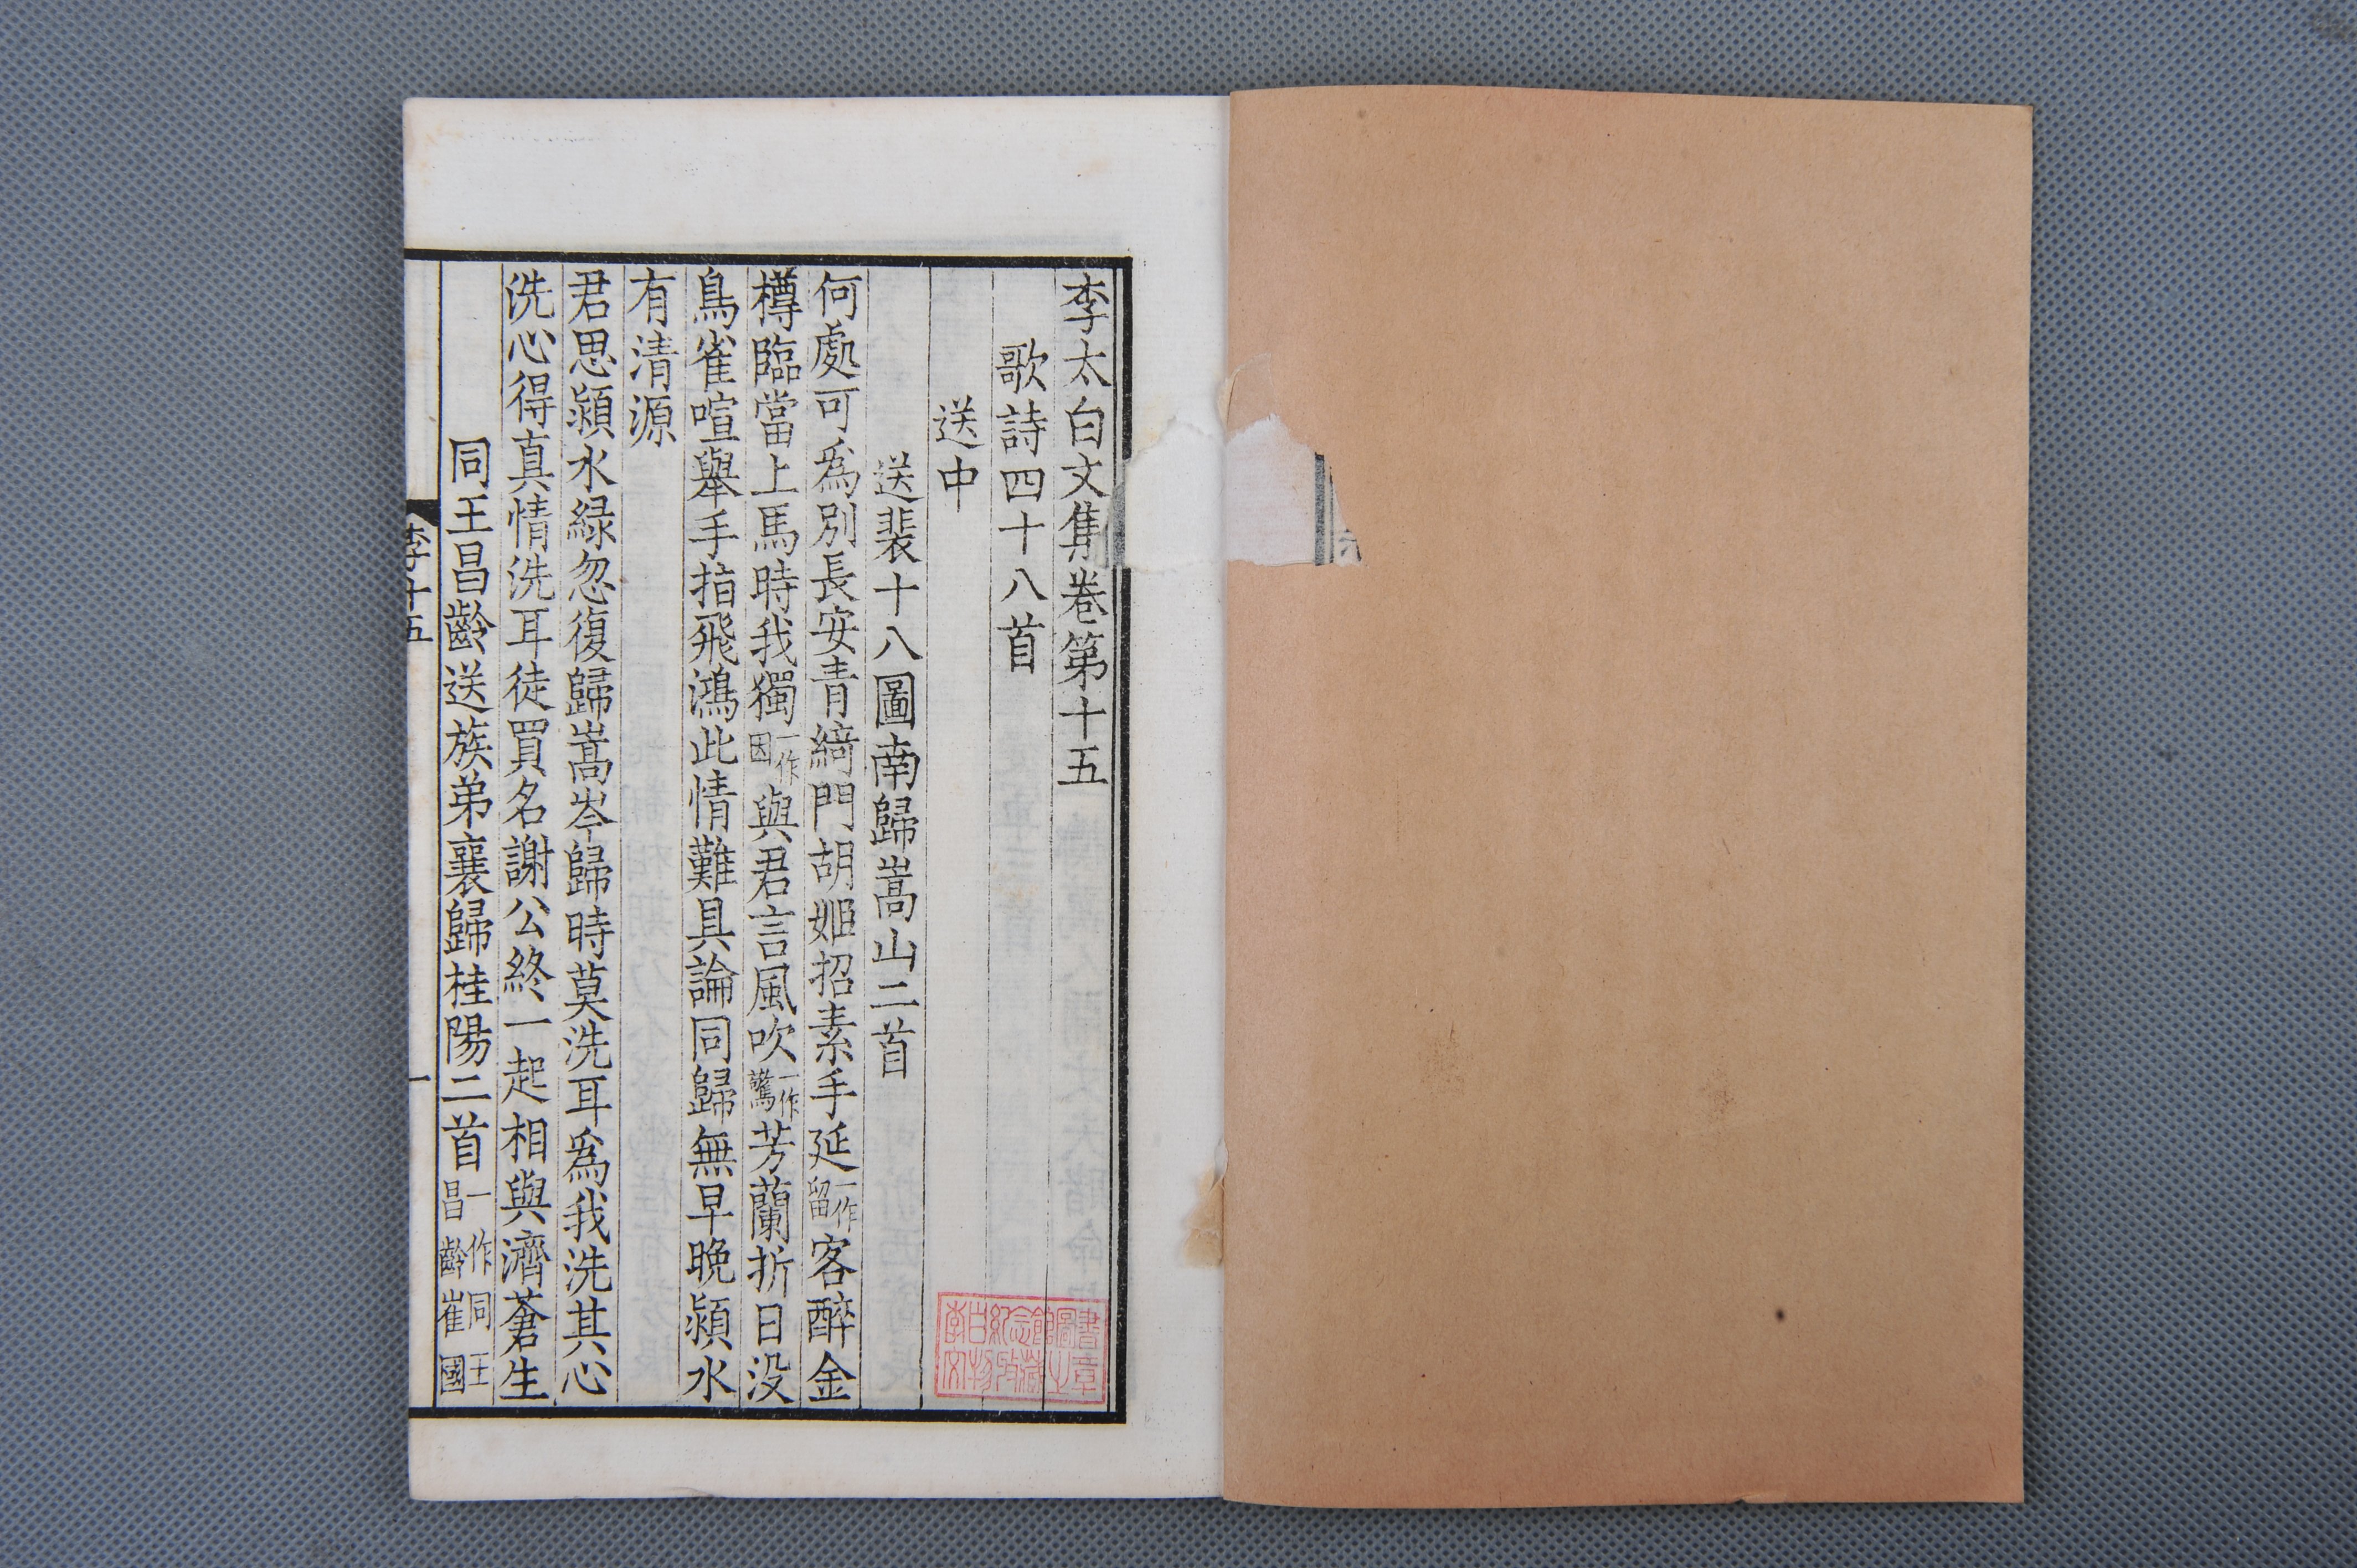 李太白文集卷第十五
歌詩四十八首
送中
送裴十八圖南歸嵩山二首
何處可爲別長安青綺門胡姬招素手延一作留客醉金
樽臨當上馬時我獨一作因與君言風吹一作驚芳蘭折日没
鳥雀喧舉手指飛鴻此情難具論同歸無早晚潁水
有清源
君思潁水綠忽復歸嵩岑歸時莫洗耳爲我洗其心
洗心得真情洗耳徒買名謝公終一起相與濟蒼生
同王昌齡送族弟襄歸桂陽二首一作同王昌齡崔國
李十五
一
李白紀念館圖書
文物收藏之章